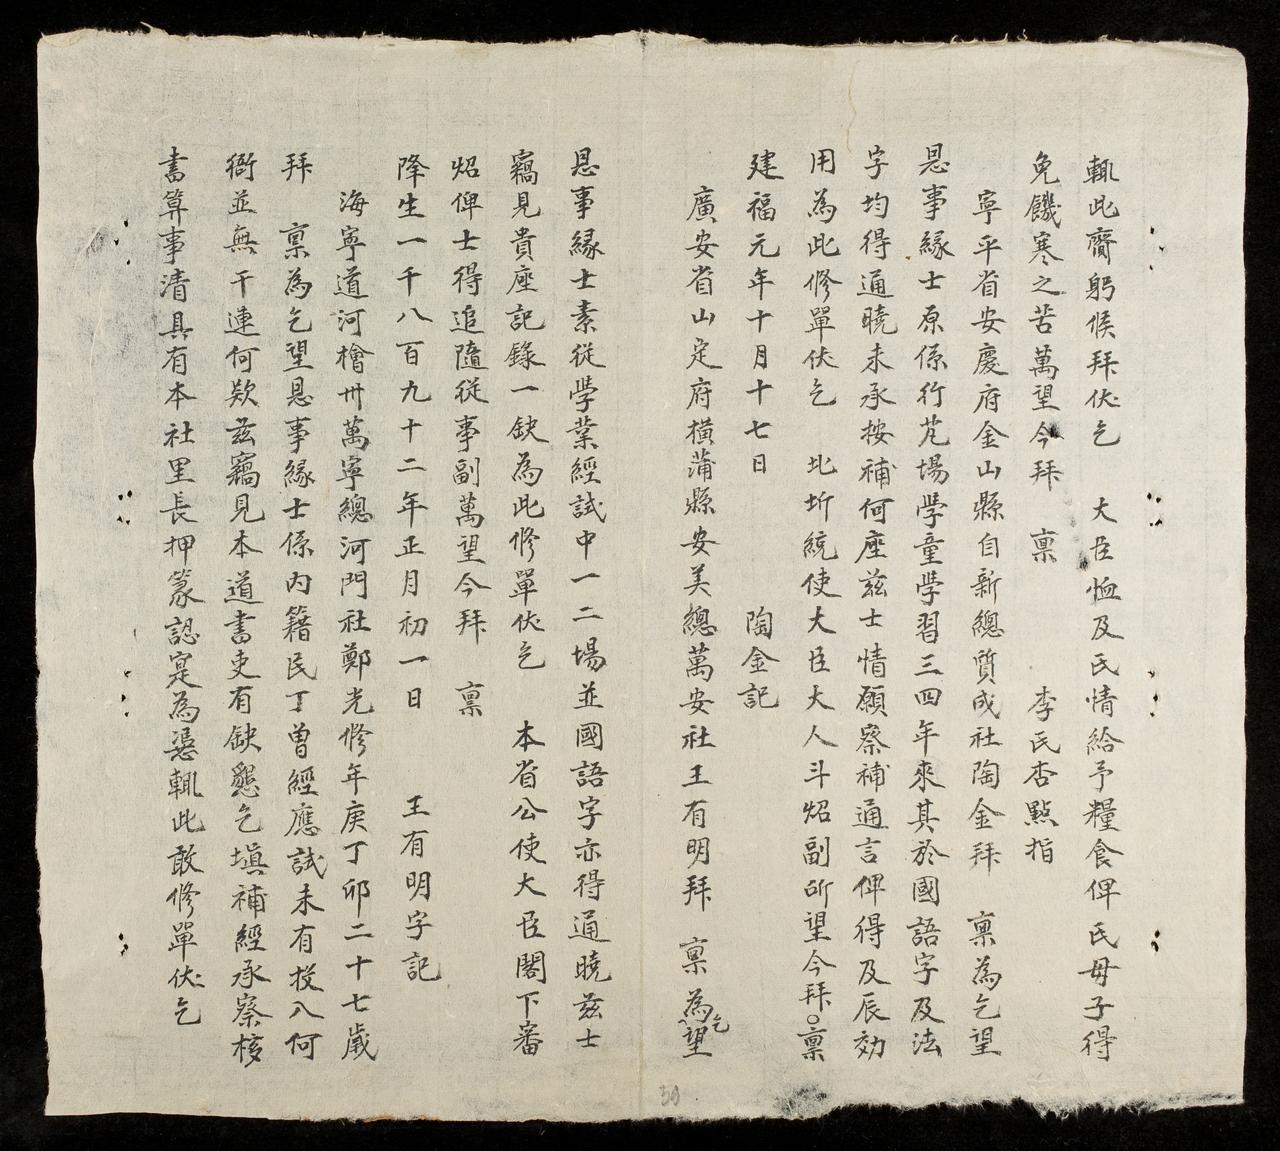 輒此齎躬候拜伏乞　大臣恤及民情給予糧食俾民母子得
免饑寒之苦萬望今拜　稟　　李氏杏點指
寧平省安慶府金山縣自新總質成社陶金拜　稟為乞望
恩事緣士原係行芃場學童學習三四年來其於國語字及法
字均得通曉未承按補何座茲士情願察補通言俾得及辰効
用為此修單伏乞　北圻統使大臣大人斗炤副所望今拜○稟
建福元年十月十七日　　陶金記
廣安省山定府橫蒲縣安美總萬安社王有明拜　稟為乞望
恩事緣士素從學業經試中一二場並國語字亦得通曉茲士
竊見貴座記錄一缺為此修單伏乞　本省公使大臣閣下審
炤俾士得追隨從事副萬望今拜　稟
降生一千八百九十二年正月初一日　　王有明字記
海寧道河檜州萬寧總河門社鄭光修年庚丁卯二十七歲
拜　稟為乞望恩事緣士係內籍民丁曾經應試未有投入何
衙並無干連何欵茲竊見本道書吏有缺懇乞填補經承察核
書算事清具有本社里長押篆認寔為憑輒此敢修單伏乞
30